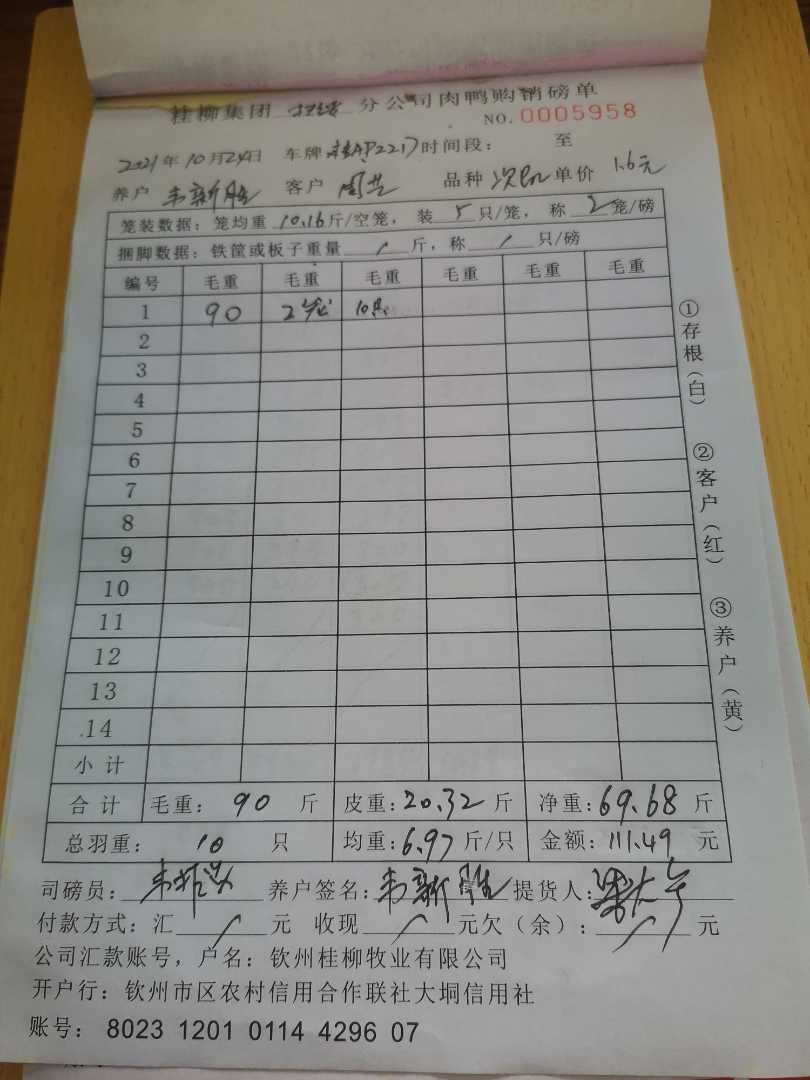 桂柳集团 分公司肉鸭购销磅单
NO. 0005958
2021年10月24日 车牌 桂AP2217 时间段： 至
养户 韦新胜 客户 周芸 品种 次鸭 单价 1.6元
笼装数据：笼均重 10.16 斤/空笼， 装 5 只/笼， 称 2 笼/磅
捆脚数据：铁筐或板子重量 / 斤，称 / 只/磅
编号 毛重 毛重 毛重 毛重 毛重 毛重
1 90 2笼 10只
2
3
4
5
6
7
8
9
10
11
12
13
14
小计
合计 毛重： 90 斤 皮重：20.32 斤 净重：69.68 斤
总羽重： 10 只 均重：6.97 斤/只 金额：111.49 元
司磅员： 养户签名：韦新胜 提货人：
付款方式：汇 / 元 收现 / 元欠（余）： / 元
公司汇款账号，户名：钦州桂柳牧业有限公司
开户行：钦州市区农村信用合作联社大垌信用社
账号： 8023 1201 0114 4296 07
①存根（白） ②客户（红） ③养户（黄）